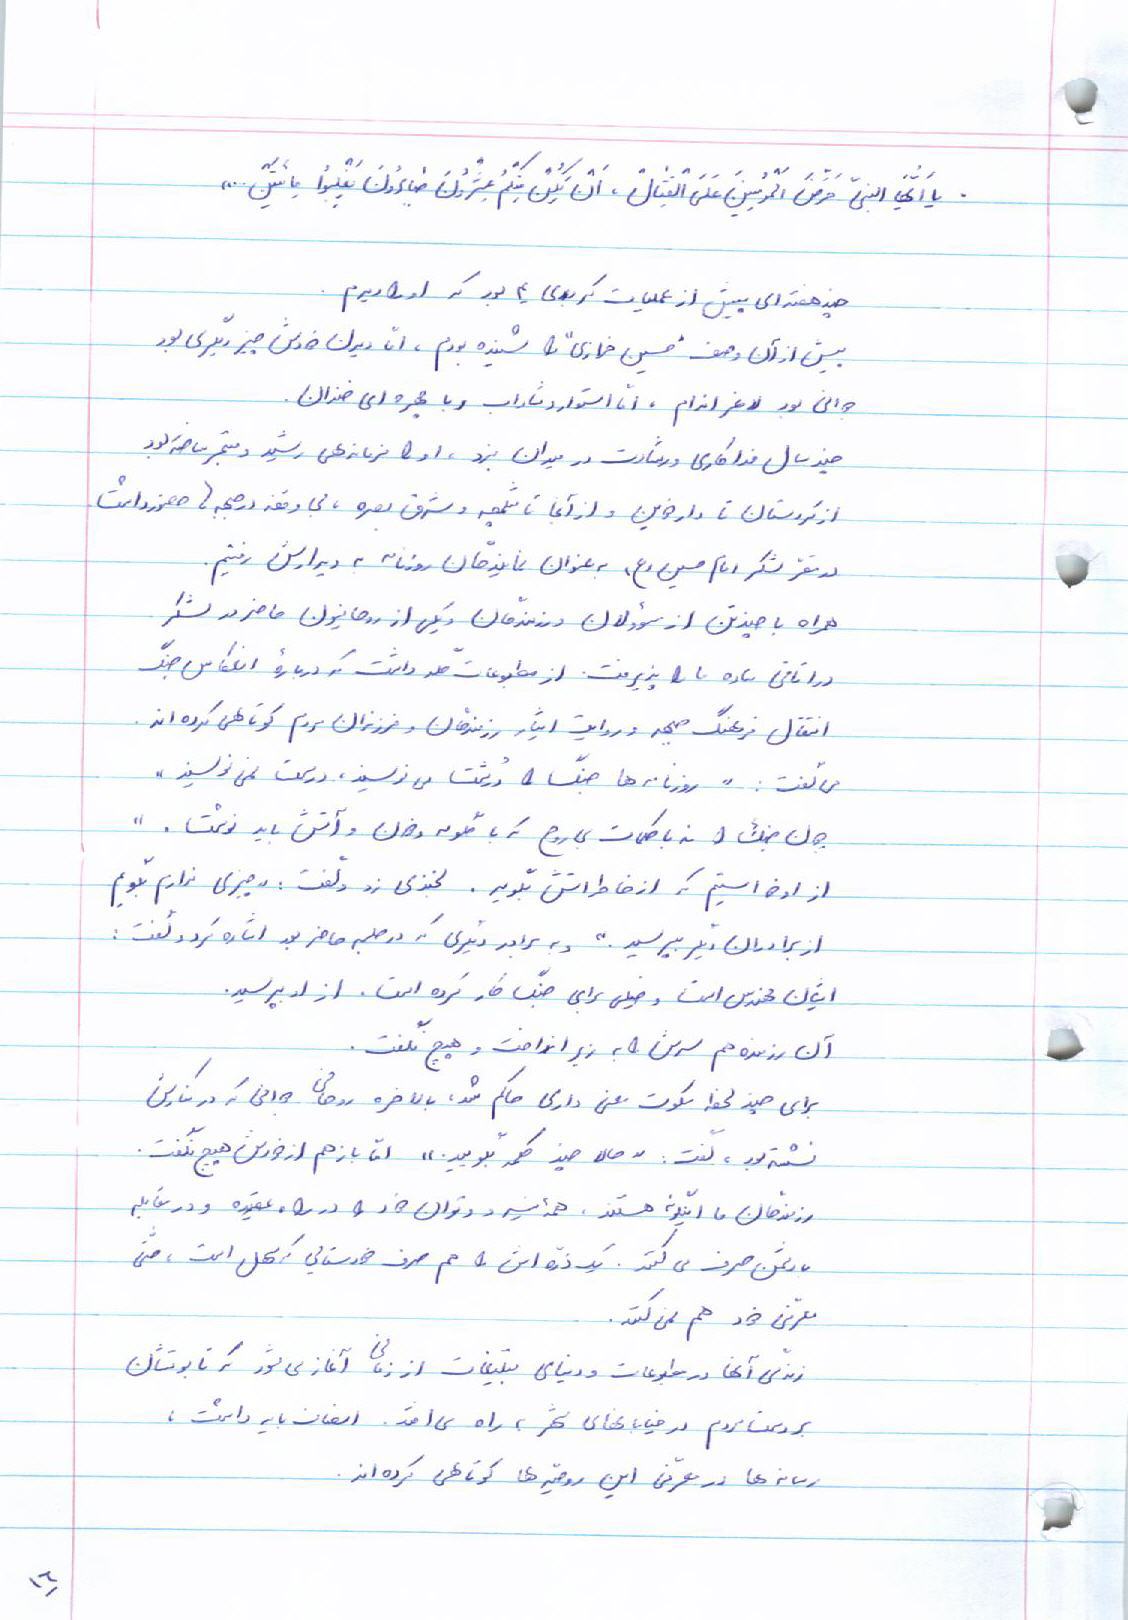 . یا اَیُّهَا النَّبیّ حَرِّضِ المُؤمِنینَ عَلَی الْقِتٰالْ ، اَنْ یَکُنْ مِنْکُمْ عِشْرُونَ صٰابِرُونَ یَغْلِبُوا مِأَتَیْن ...»
چند هفته‌ای پیش از عملیات کربلای ۴ بود که او را دیدم .
پیش از آن وصف "حسین خرازی" را شنیده بودم ، امّا دیدن خودش چیز دیگری بود
جوانی بود لاغر اندام ، امّا استوار و شاداب و با چهره ای خندان .
چند سال فداکاری و رشادت در میدان نبرد ، او را فرمانده‌ای رشید و متبحّر ساخته بود
از کردستان تا دارخوین و از آنجا تا شلمچه و شرق بصره ، بی وقفه در جبهه ها حضور داشت .
در مقر لشکر امام حسین (ع) به عنوان نمایندگان روزنامه به دیدارش رفتیم .
همراه با چند تن از مسؤولان و رزمندگان و یکی از روحانیون حاضر در لشکر
در اتاقی ساده ما را پذیرفت . از مطبوعات گله داشت که دربارهٔ انعکاس جنگ
انتقال فرهنگ جبهه و روایت ایثار رزمندگان و فرزندان مردم کوتاهی کرده اند .
می گفت : " روزنامه ها جنگ را دُرُشت می نویسند ، درست نمی نویسند "
چون جنگ را نه با کلمات بی روح که با گلوله و خون و آتش باید نوشت . "
از او خواستیم که از خاطراتش بگوید . لبخندی زد و گفت : " چیزی ندارم بگویم
از برادران دیگر بپرسید . " و به برادر دیگری که در جلسه حاضر بود اشاره کرد و گفت :
ایشان مهندس است و خیلی برای جنگ کار کرده است . از او بپرسید .
آن رزمنده هم سرش را به زیر انداخت و هیچ نگفت .
برای چند لحظه سکوت معنی داری حاکم شد ، بالاخره روحانی جوانی که در کنارش
نشسته بود ، گفت : " حالا چند کلمه بگویید . " امّا باز هم از خودش هیچ نگفت .
رزمندگان ما اینگونه هستند . همهٔ نیرو و توان خود را در راه عقیده و در مقابله
با دشمن صرف می کنند . یک ذرّه اش را هم صرف خودستایی که سهل است ، حتّی
معرّفی خود هم نمی کنند .
زندگی آنها در مطبوعات و دنیای تبلیغات از زمانی آغاز می شود که تابوتشان
بر دست مردم در خیابانهای شهر به راه می افتد . اذعان باید داشت ،
رسانه ها در معرّفی این روحیّه ها کوتاهی کرده اند .